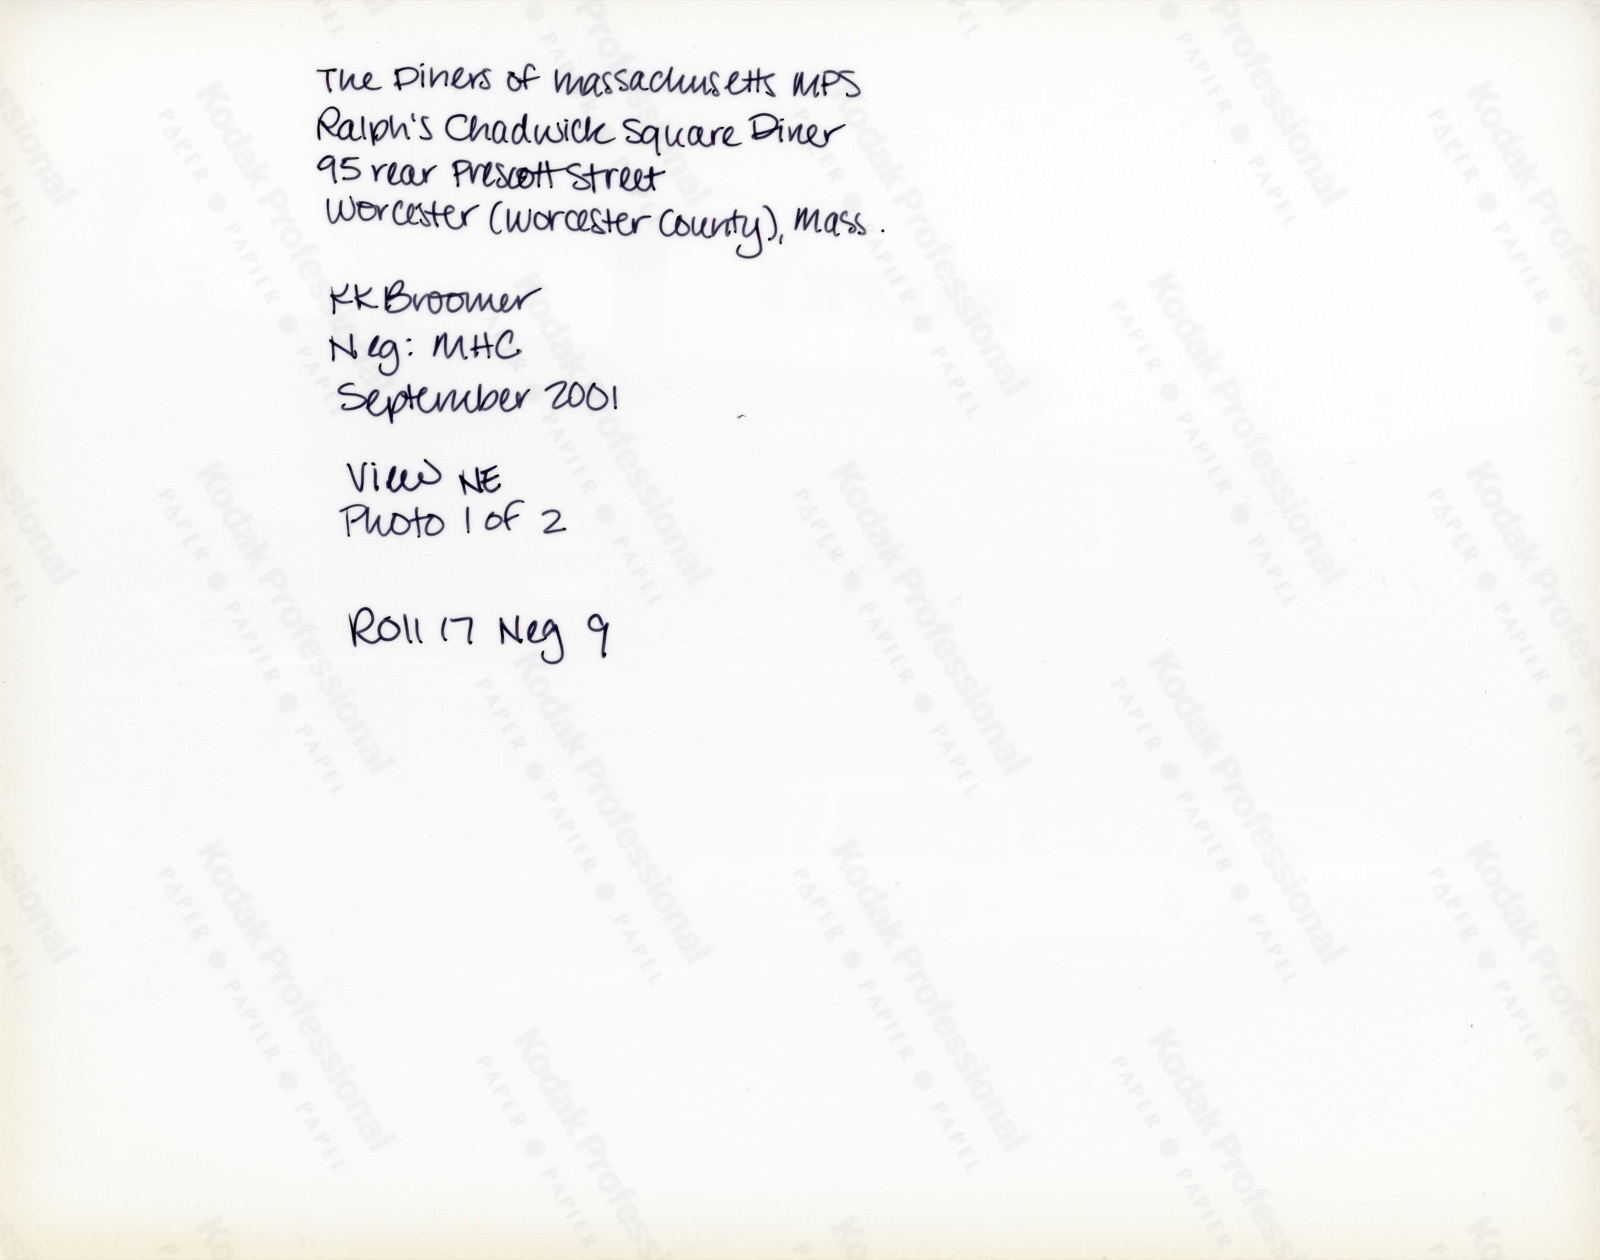 The Diners of Massachusetts MPS
Ralph's Chadwick Square Diner
95 rear Prescott Street
Worcester (Worcester County), Mass.
KKBroomer
Neg: MHC
September 2001
View NE
Photo 1 of 2
Roll 17 Neg 9